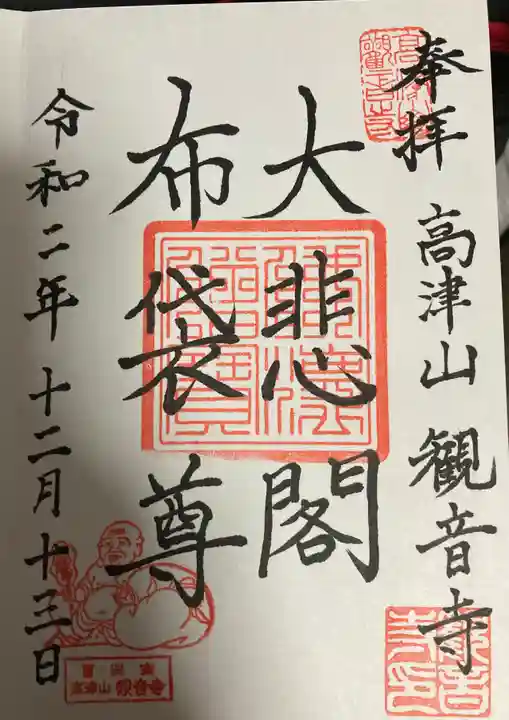 奉拝 高津山 観音寺
大悲閣
布袋尊
令和二年 十二月 十三日
高津山 観音寺